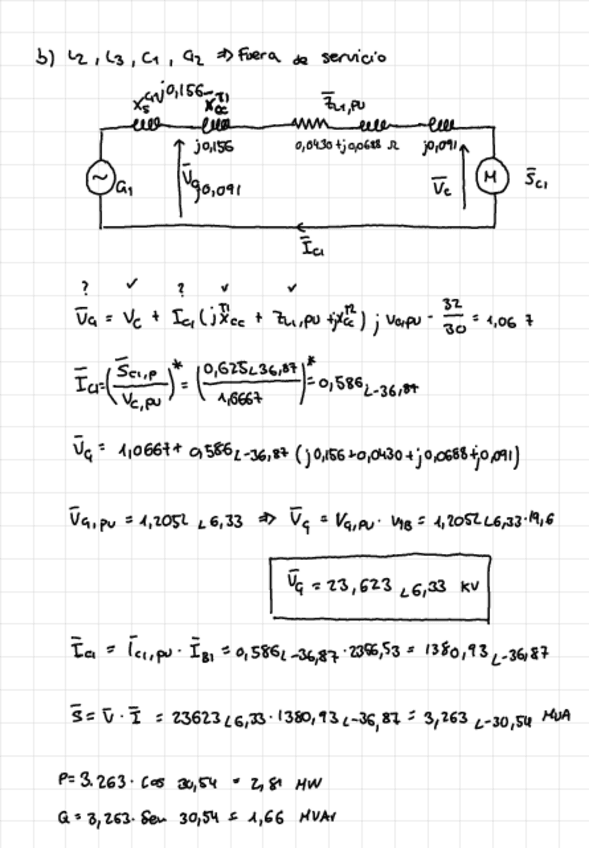 b) L2, L3, C1, G2 ⇒ Fuera de servicio
j0,156
j0,156
Z̄L1,PU
0,0430+j0,0688 Ω
j0,091
G1
V̄g
0,091
V̄c
M
S̄C1
ĪC1
? ✓ ? ✓ ✓
ŪG = VC + ĪC1 (jXcc^T1 + ZL1,PU + jXcc^T2) ; VC,PU = 32/30 = 1,0667
ĪC1 = (S̄C1,P / VC,PU)* = (0,625∠36,87 / 1,6667)* = 0,586∠-36,87
ŪG = 1,0667 + 0,586∠-36,87 (j0,156+0,0430+j0,0688+j0,091)
ŪG,PU = 1,2052 ∠6,33 ⇒ ŪG = VG,PU · VB = 1,2052∠6,33·19,6
ŪG = 23,623 ∠6,33 KV
ĪC1 = ĪC1,PU · ĪB1 = 0,586∠-36,87 · 2356,53 = 1380,93∠-36,87
S̄ = V̄ · Ī = 23623∠6,33 · 1380,93∠-36,87 = 3,263 ∠-30,54 MVA
P = 3.263 · Cos 30,54 = 2,81 MW
Q = 3,263 · Sen 30,54 = 1,66 MVAr